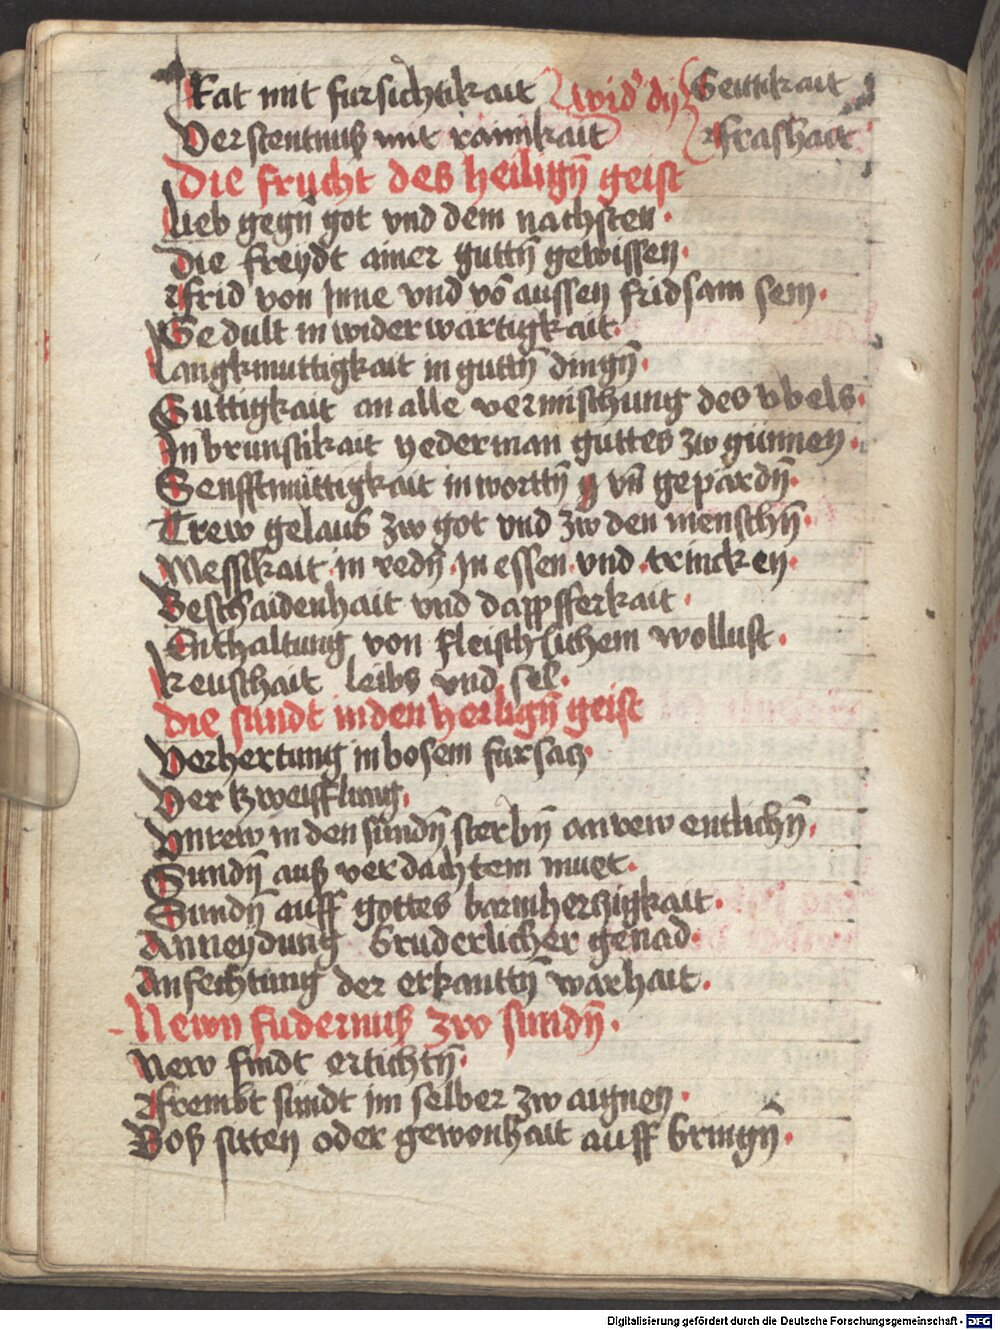 Rat mit fursichtikait wid' dy Geittikait
Verstentnuß mit rainikait Ffrashait
Die frucht des heilign̄ geist
Lieb gegn̄ got vnd dem nachsten.
Die freydt ainer guttn̄ gewissen.
Ffrid von Inne vnd vō aussen fridsam sein.
Gedult in widerwartigkait.
Langkmuttigkait in guttn̄ dingn̄.
Guttigkait an alle vermischung des vbels.
Inbrunstikait yederman guttes zw gunnen.
Senfftmuttigkait in worttn̄ vn̄ gepärdn̄.
Trew gelaub zw got vnd zw den menschn̄.
Messikait in redn̄. In essen. vnd. trincken.
Beschaidenhait vnd dappfferkait.
Enthaltung von fleischlichem wollust.
keuschait leibs vnd sel.
Die sundt in den heilign̄ geist
Verhertung in bosem fursatz.
Vertzweifflung.
Vnrew in den sundn̄ sterbn̄ an rew entlichn̄.
Sundn̄ auß verdachtem muet.
Sundn̄ auff gottes barmhertzigkait.
Anneydung bruderlicher genad.
Anfechtung der erkanttn̄ warhait.
Newn fudernuß zw sundn̄.
New sundt ertichtn̄.
Ffrembt sundt im selber zw aignen.
Boß sitten oder gewonhait auff bringn̄.
Digitalisierung gefördert durch die Deutsche Forschungsgemeinschaft - DFG